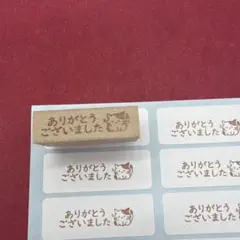 ありがとう
ございました
ありがとう
ございました
ありがとう
ございました
ありがとう
ございました
ありがとう
ございました
ありがとう
ございました